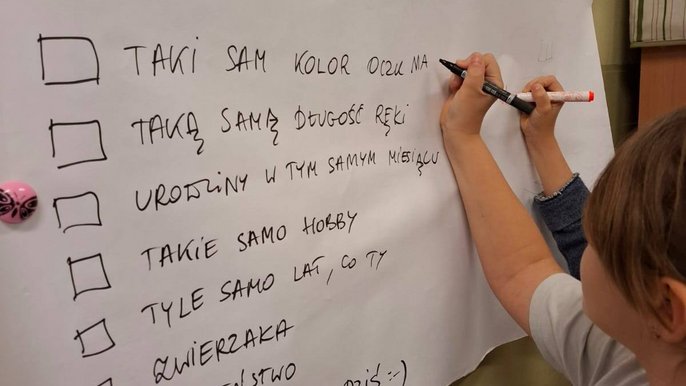 TAKI SAM KOLOR OCZU NA
TAKĄ SAMĄ DŁUGOŚĆ RĘKI
URODZINY W TYM SAMYM MIESIĄCU
TAKIE SAMO HOBBY
TYLE SAMO LAT, CO TY
ZWIERZAKA
DZIŚ :-)